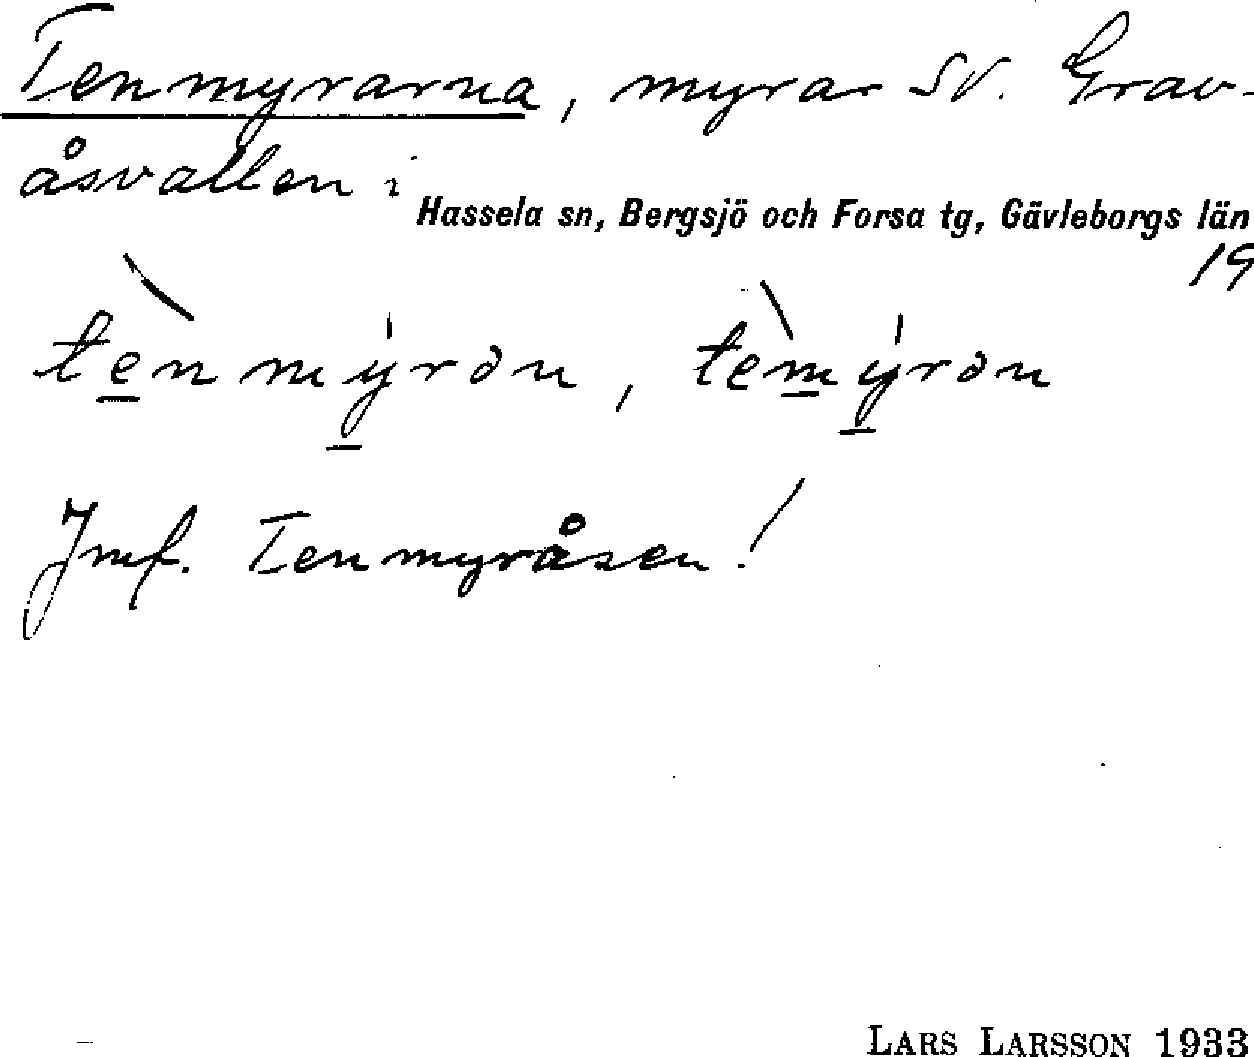 Tenmyrarna, myrar SV. Grav-
åsvallen i
Hassela sn, Bergsjö och Forsa tg, Gävleborgs län
19
tènmýron, tèmýron
Jmf. Tenmyråsen!
LARS LARSSON 1933